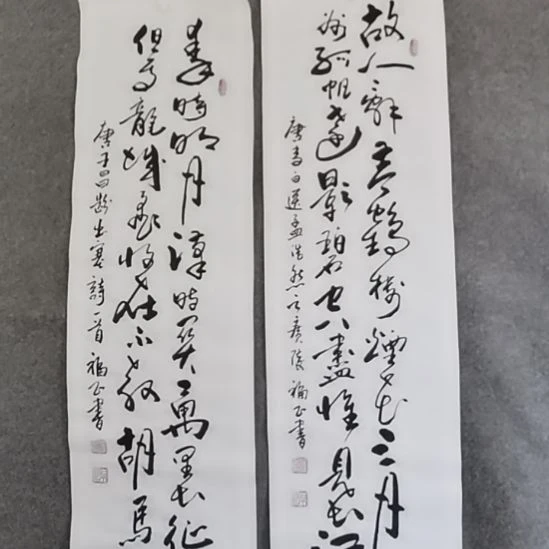 故人辭黄鶴樓煙花三月
州孤帆遠影碧空盡惟見長江
唐李白送孟浩然之廣陵 福正書
秦時明月漢時關萬里長征
但使龍城飛將在不教胡馬
唐王昌齡出塞詩一首 福正書